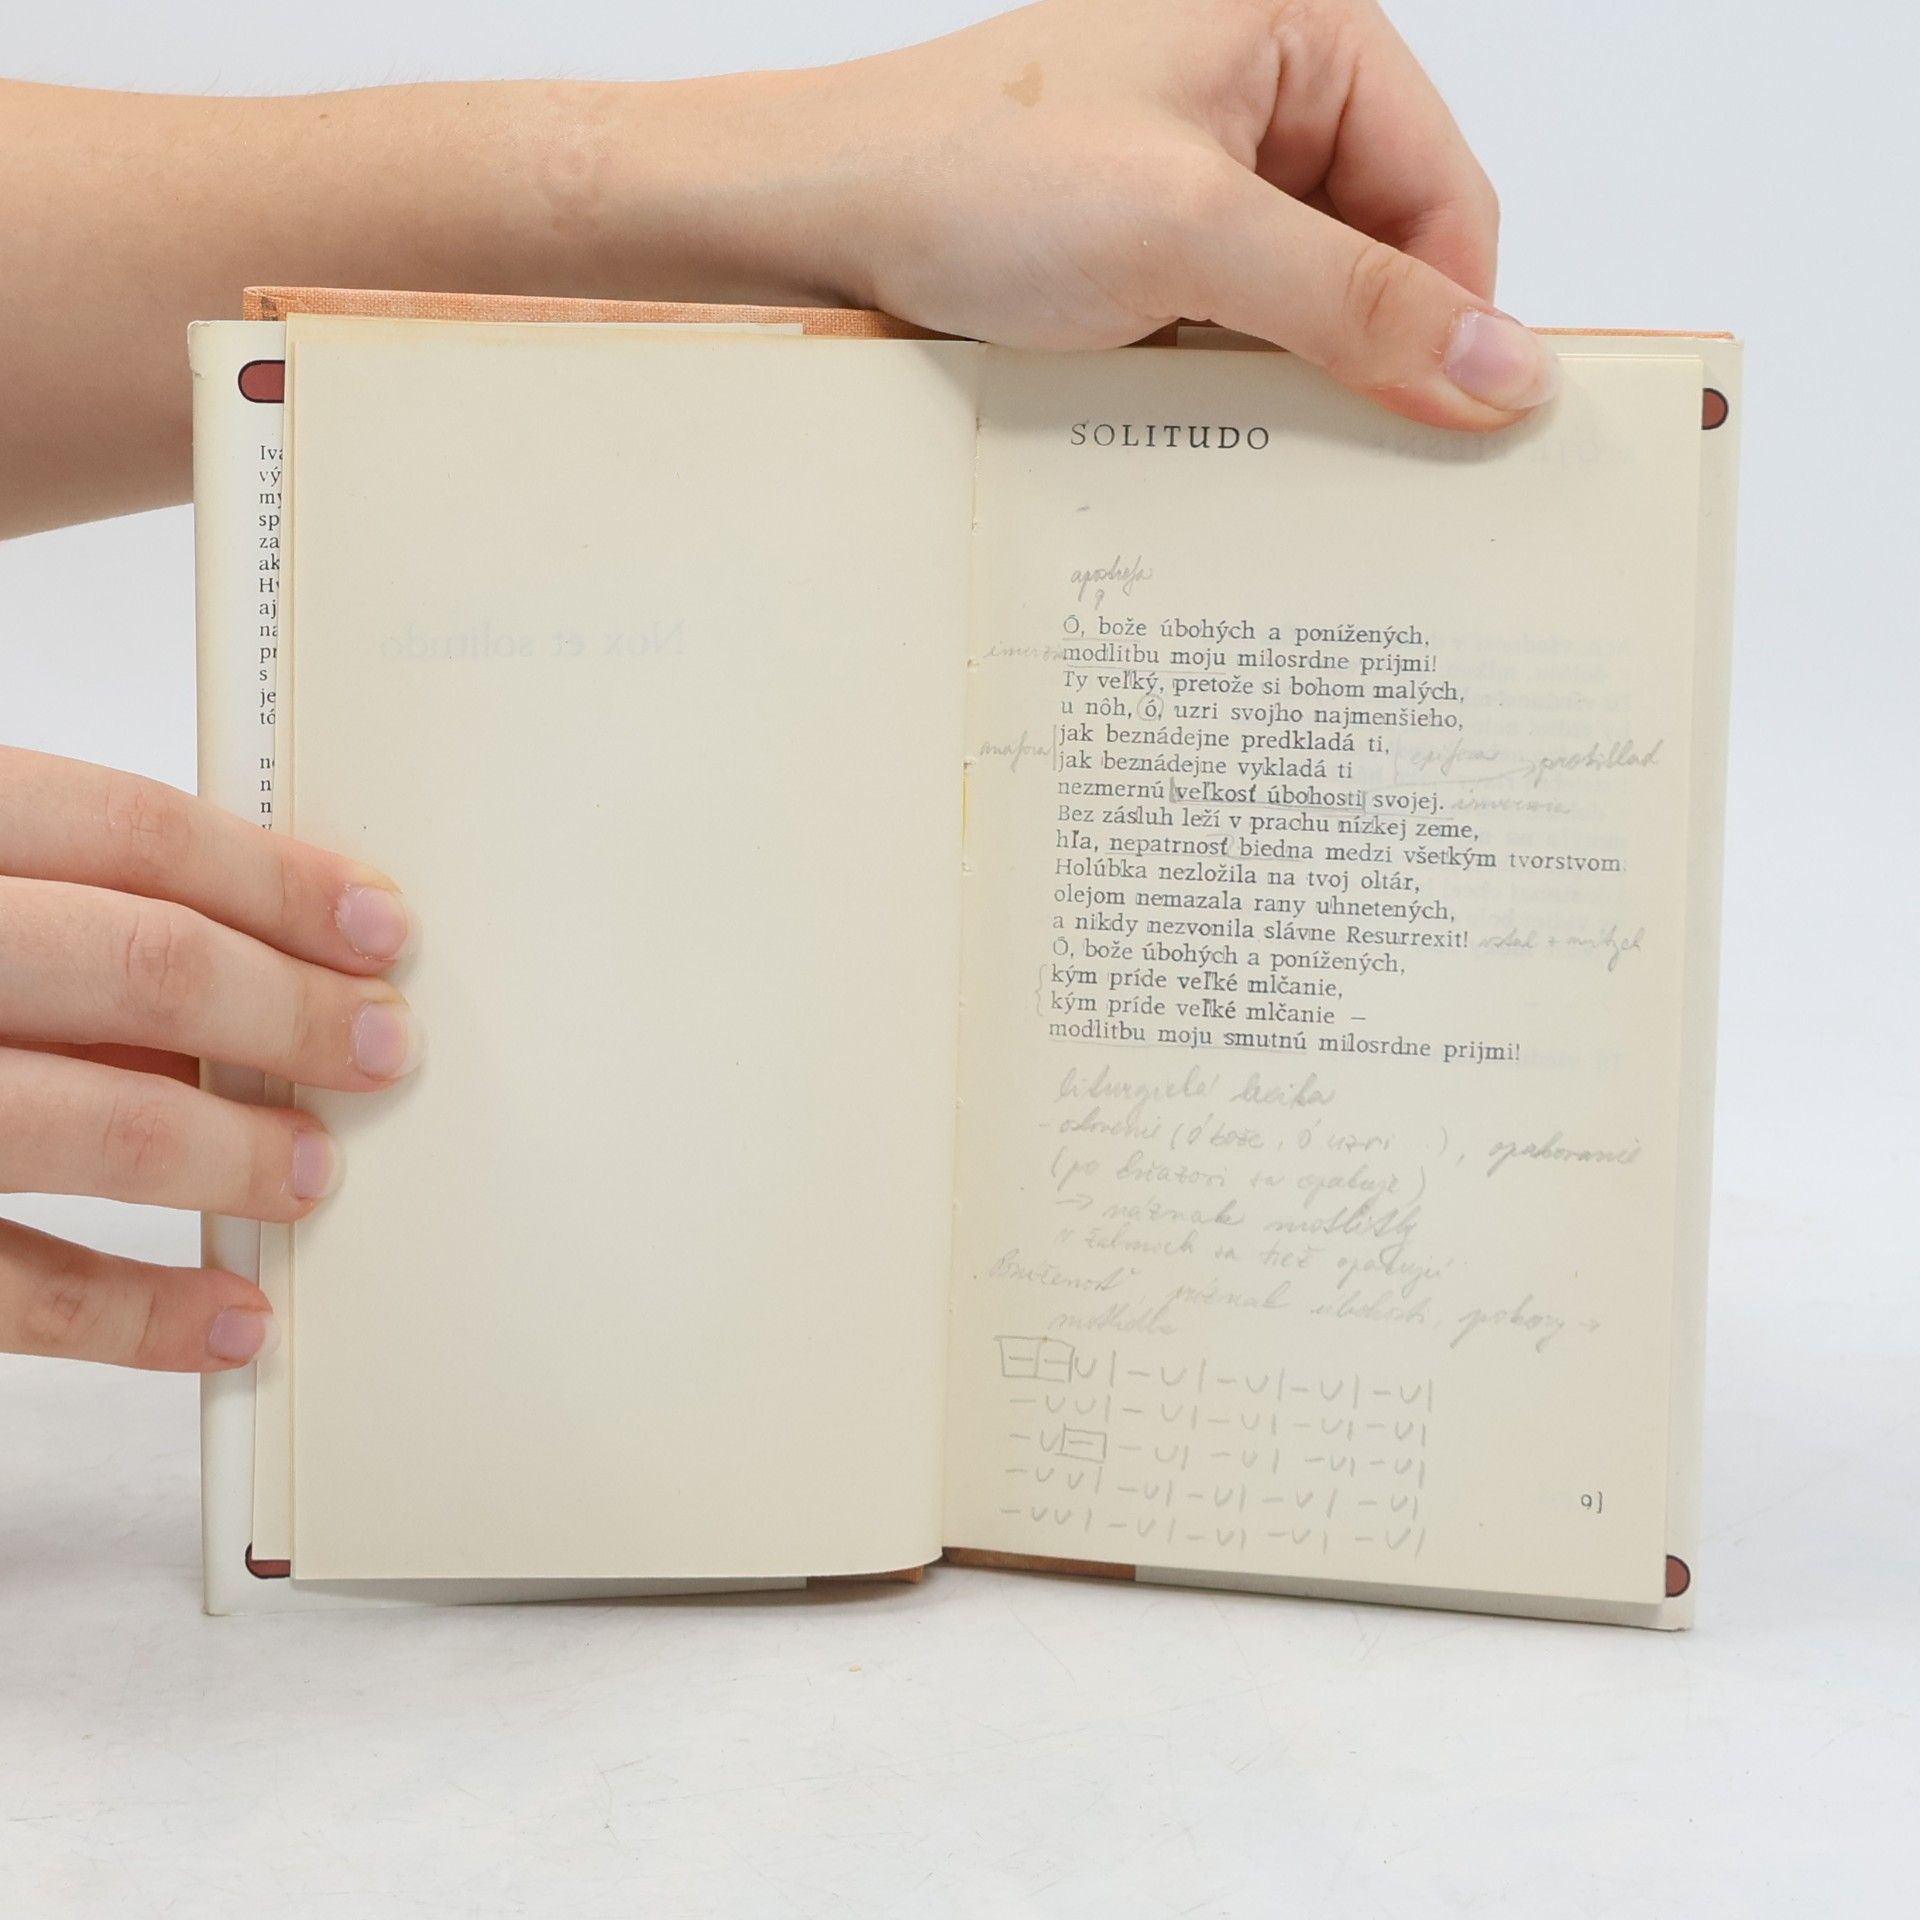 Iva
vý
my
sp
za
ak
Hv
aj
na
pr
s
je
tó
n
n
Nox et solitudo
SOLITUDO
apostrofa
Ó, bože úbohých a ponížených,
modlitbu moju milosrdne prijmi!
Ty veľký, pretože si bohom malých,
u nôh, ó, uzri svojho najmenšieho,
jak beznádejne predkladá ti,
anafora
epifora → protiklad
jak beznádejne vykladá ti
nezmernú veľkosť úbohosti svojej.
Bez zásluh leží v prachu nízkej zeme,
hľa, nepatrnosť biedna medzi všetkým tvorstvom.
Holúbka nezložila na tvoj oltár,
olejom nemazala rany uhnetených,
a nikdy nezvonila slávne Resurrexit! vstal z mŕtvych
Ó, bože úbohých a ponížených,
kým príde veľké mlčanie,
kým príde veľké mlčanie —
modlitbu moju smutnú milosrdne prijmi!
liturgická
- oslovenie (Ó bože, Ó uzri ..), opakovanie
(po sa opakuje)
→ náznak modlitby
v žalmoch sa tiež opakujú
náznak úbohosti, pokory →
modlidba
9]